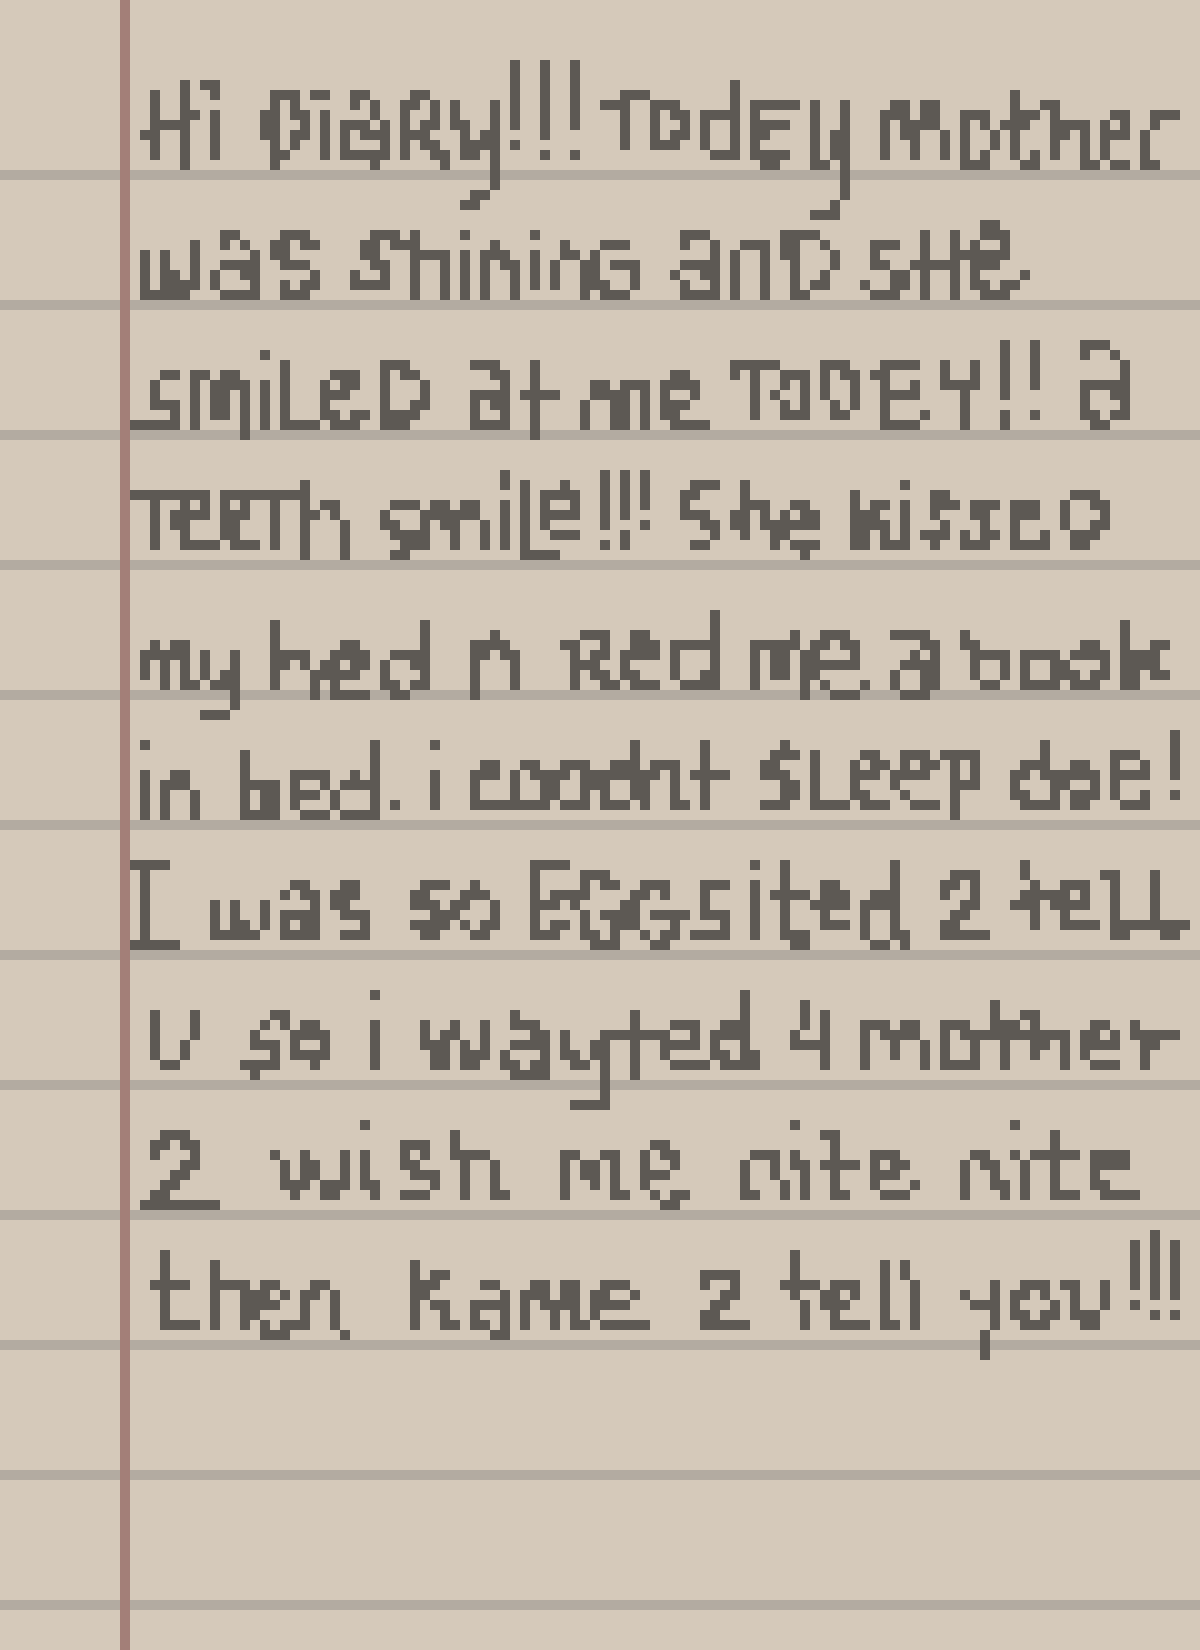 Hi DiaRy!!! TodEy Mother
was shininG anD sHe
smiLeD at me ToDEY!! a
TEETh smiLe!!! She kissed
my hed n Red me a book
in bed. i coodnt SLeep doe!
I was so EGGsited 2 tell
U so i wayted 4 mother
2 wish me nite nite
then kame 2 tell you!!!